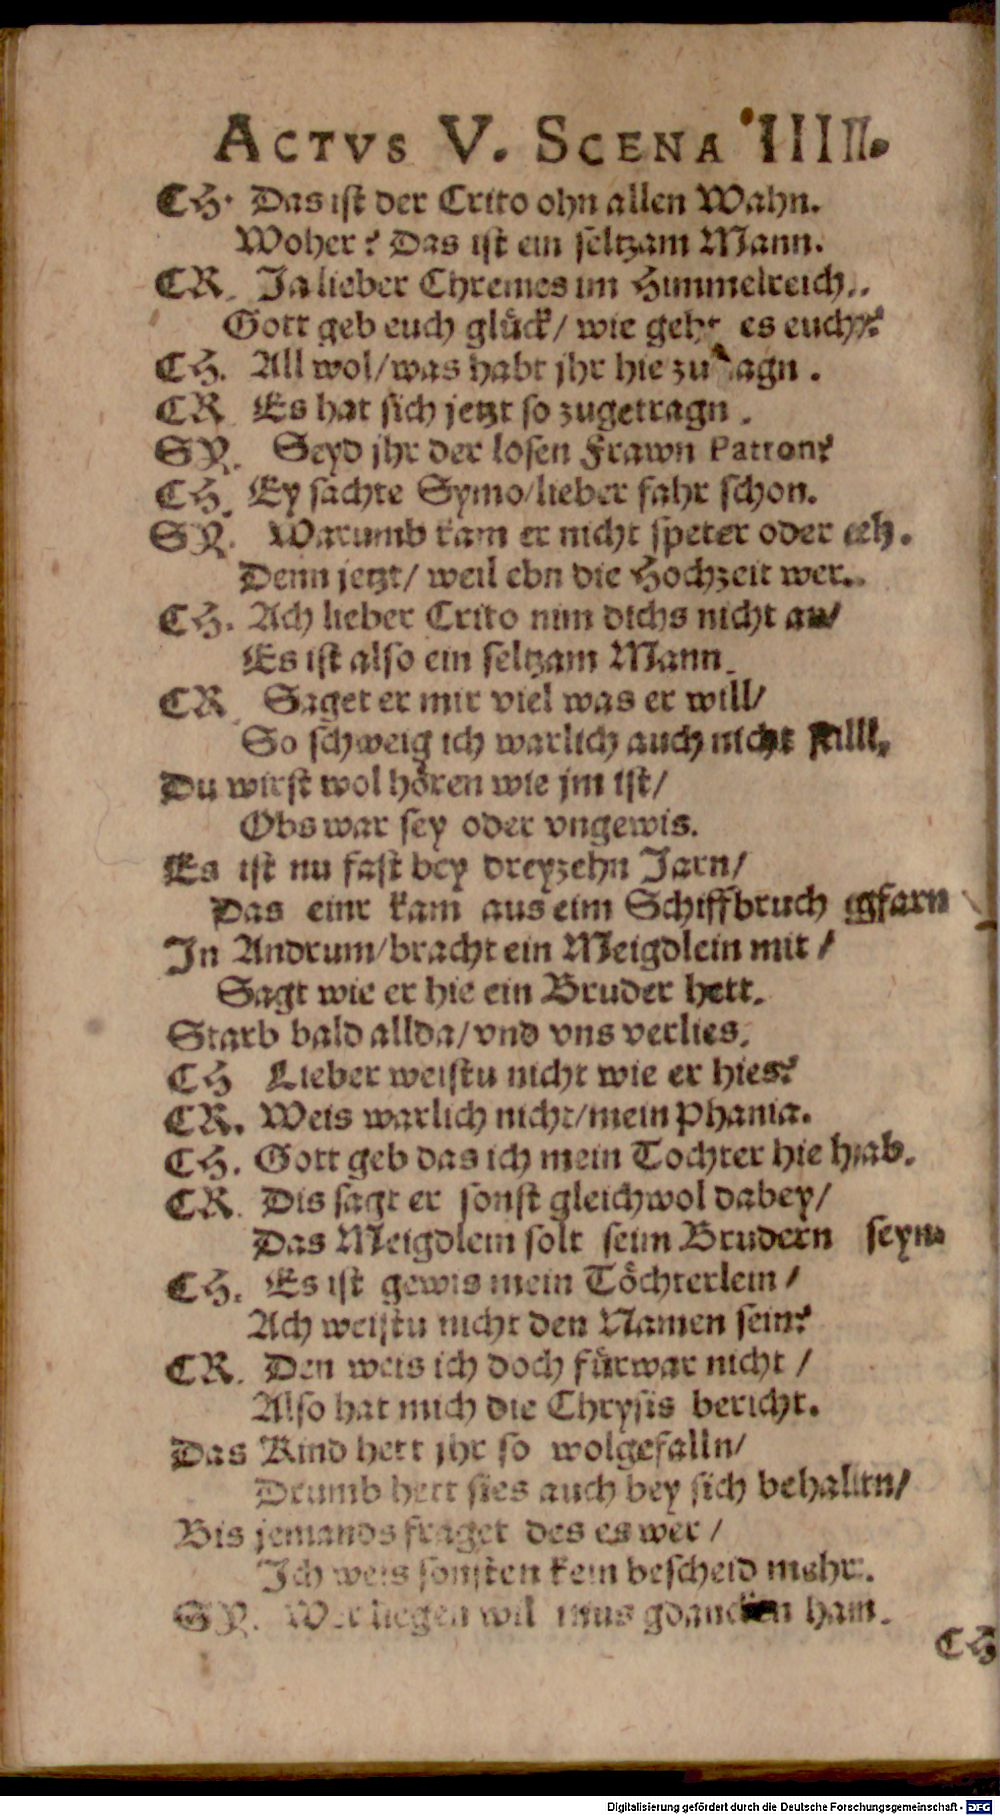 ACTVS V. SCENA IIIII.
CH. Das ist der Crito ohn allen Wahn.
Woher? Das ist ein seltzam Mann.
CR. Ja lieber Chremes im Himmelreich..
Gott geb euch glück/ wie geht es euch?
CH. All wol/was habt jhr hie zu sagn.
CR Es hat sich jetzt so zugetragn.
SY. Seyd jhr der losen Frawn Patron?
CH. Ey sachte Symo/lieber fahr schon.
SY. Warumb kam er nicht speter oder eeh.
Denn jetzt/ weil ebn die Hochzeit wer.
CH. Ach lieber Crito nim dichs nicht an/
Es ist also ein seltzam Mann.
CR. Saget er mir viel was er will/
So schweig ich warlich auch nicht still.
Du wirst wol hören wie jm ist/
Obs war sey oder vngewis.
Es ist nu fast bey dreyzehn Jarn/
Das einr kam aus eim Schiffbruch gfarn
In Andrum/bracht ein Meigdlein mit/
Sagt wie er hie ein Bruder hett.
Starb bald allda/vnd vns verlies.
CH Lieber weistu nicht wie er hies?
CR. Weis warlich nicht/mein Phania.
CH. Gott geb das ich mein Tochter hie hab.
CR. Dis sagt er sonst gleichwol dabey/
Das Meigdlein solt seim Brudern seyn
CH. Es ist gewis mein Töchterlein/
Ach weistu nicht den Namen sein?
CR. Den weis ich doch fürwar nicht/
Also hat mich die Chrysis bericht.
Das Kind hett jhr so wolgefalln/
Drumb hett sies auch bey sich behaltn/
Bis jemands fraget des es wer/
Ich weis sonsten kein bescheid mehr.
SY. Wer liegen wil mus gdancken ham.
CH
Digitalisierung gefördert durch die Deutsche Forschungsgemeinschaft - DFG